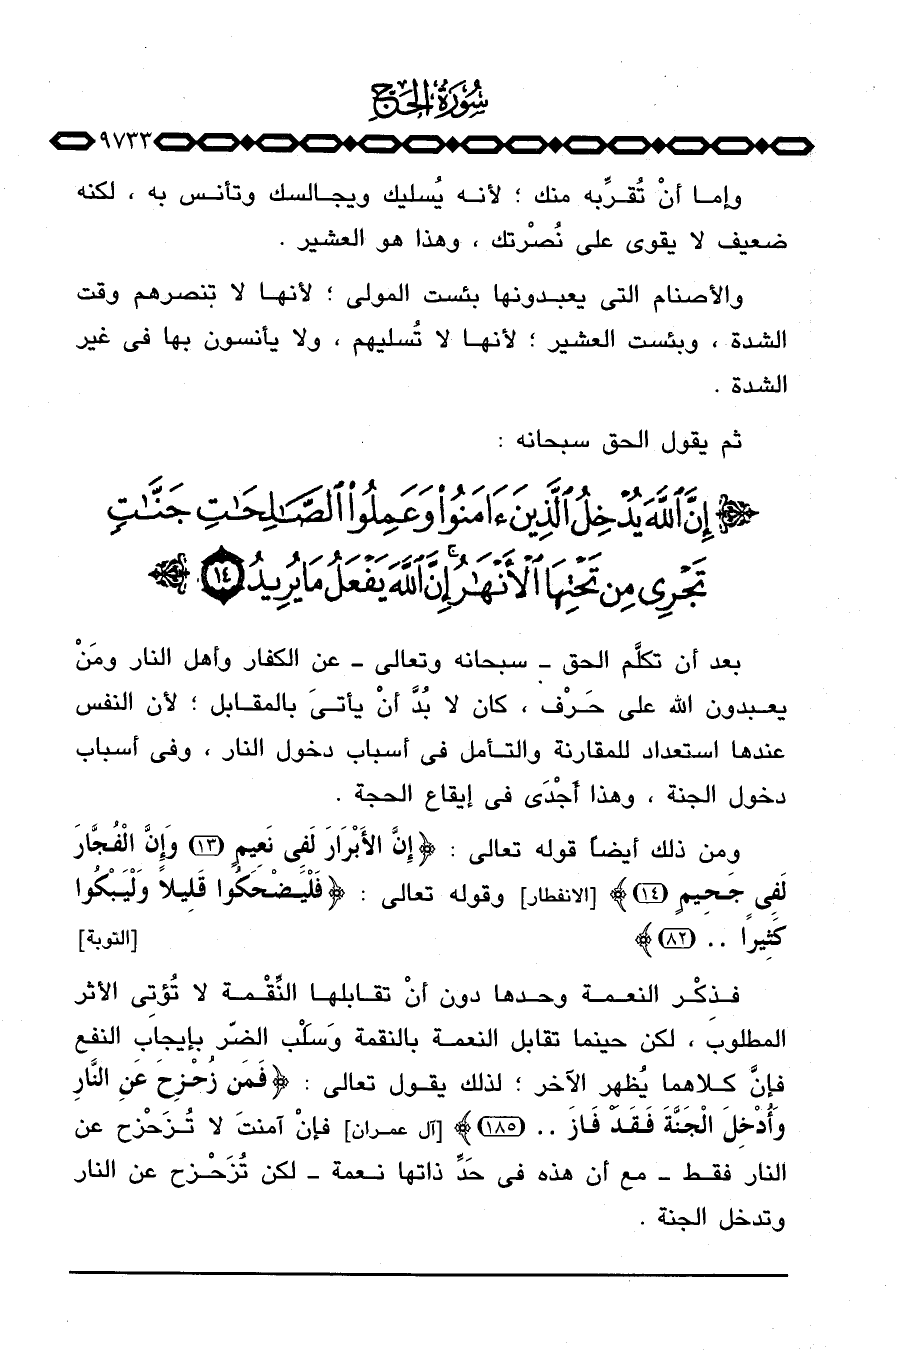 سُورَةُ الحَجّ
٩٧٣٣
وإمـا أنْ تُقـرِّبه منك ؛ لأنـه يُسليك ويجـالسك وتأنـس به ، لكنه
ضعيف لا يقوى على نُصْرتك ، وهذا هو العشير .
والأصنام التى يعبـدونها بئست المولى ؛ لأنهـا لا تنصرهم وقت
الشدة ، وبئست العشير ؛ لأنهـا لا تُسليهم ، ولا يأنسون بها فى غير
الشدة .
ثم يقول الحق سبحانه :
إِنَّ ٱللَّهَ يُدْخِلُ ٱلَّذِينَ ءَامَنُوا۟ وَعَمِلُوا۟ ٱلصَّـٰلِحَـٰتِ جَنَّـٰتٍ
تَجْرِى مِن تَحْتِهَا ٱلْأَنْهَـٰرُ ۚ إِنَّ ٱللَّهَ يَفْعَلُ مَا يُرِيدُ ١٤
بعد أن تكلَّم الحق ـ سبحانه وتعالى ـ عن الكفار وأهل النار ومَنْ
يعـبدون الله على حَـرْف ، كان لا بُدَّ أنْ يأتىَ بالمقـابل ؛ لأن النفس
عندها استعداد للمقارنة والتـأمل فى أسباب دخول النار ، وفى أسباب
دخول الجنة ، وهذا أجْدَى فى إيقاع الحجة .
ومن ذلك أيضـاً قوله تعالى : ﴿ إِنَّ الأَبْرَارَ لَفِى نَعِيمٍ (١٣) وَإِنَّ الْفُجَّارَ
لَفِى جَحِيمٍ (١٤) ﴾ [الانفطار] وقوله تعالى : ﴿ فَلْيَضْحَكُوا قَلِيلاً وَلْيَبْكُوا
كَثِيرًا .. (٨٢) ﴾ [التوبة]
فـذكْر النعمـة وحـدها دون أنْ تقـابلهـا النِّقْـمة لا تُؤتى الأثر
المطلوب ، لكن حينما تقابل النعمـة بالنقمة وَسلْب الضرّ بإيجاب النفع
فإنَّ كـلاهما يُظهر الآخر ؛ لذلك يقـول تعالى : ﴿ فَمَن زُحْزِحَ عَنِ النَّارِ
وَأُدْخِلَ الْجَنَّةَ فَقَدْ فَازَ .. (١٨٥) ﴾ [آل عمـران] فإنْ آمنتَ لا تُـزَحْزح عن
النار فقـط ـ مـع أن هذه فى حَدِّ ذاتها نـعمة ـ لكن تُزَحْـزح عن النار
وتدخل الجنة .